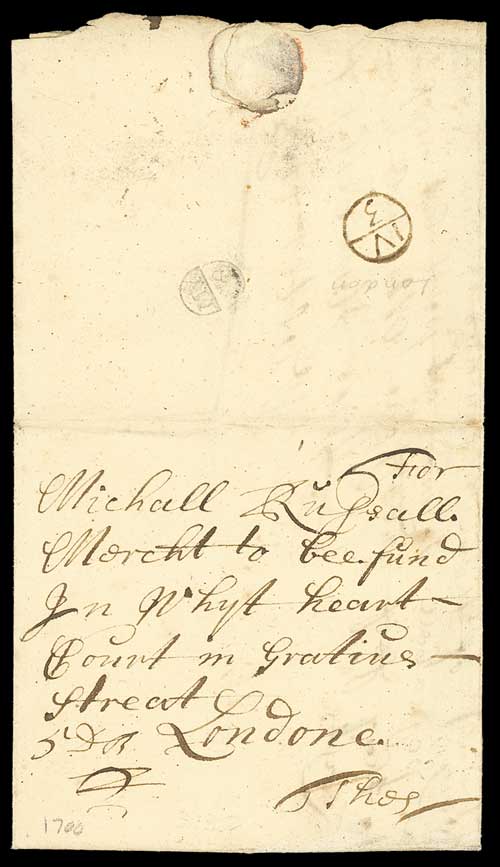 3
IV
London
For
Michall Russall.
Mercht to bee fund
In Whyt heart-
Court in Gratius-
streat
5D Londone.
Thes
1700